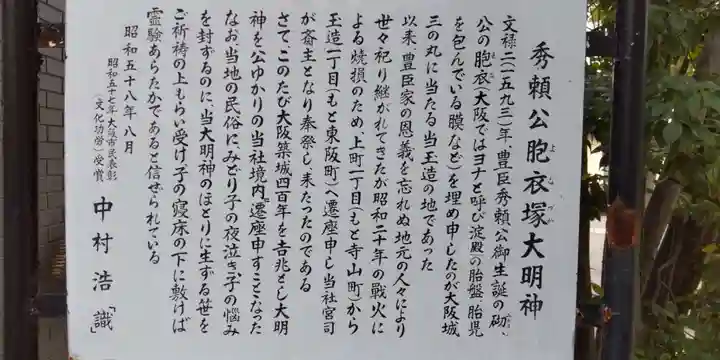 秀頼公胞衣塚大明神
よなづか
文禄二(一五九三)年、豊臣秀頼公御生誕の砌、
公の胞衣(大阪ではヨナと呼び淀殿の胎盤、胎児
を包んでいる膜など)を埋め申したのが大阪城
三の丸に当たる当玉造の地であった
以来、豊臣家の恩義を忘れぬ地元の人々により
世々祀り継がれてきたが昭和二十年の戦火に
よる焼損のため、上町一丁目(もと寺山町)から
玉造一丁目(もと東阪町)へ遷座申し当社宮司
が斎主となり奉祭し来たったのである
さて、このたび大阪築城四百年を吉兆とし大明
神を公ゆかりの当社境内に遷座申すことなった
なお当地の民俗に、みどり子の夜泣き、子の悩み
を封ずるのに、当大明神のほとりに生ずる笹を
ご祈祷の上もらい受け子の寝床の下に敷けば
霊験あらたかであると信ぜられている
昭和五十八年八月
昭和五十七年大阪市民表彰
(文化功労)受賞
中村浩「識」